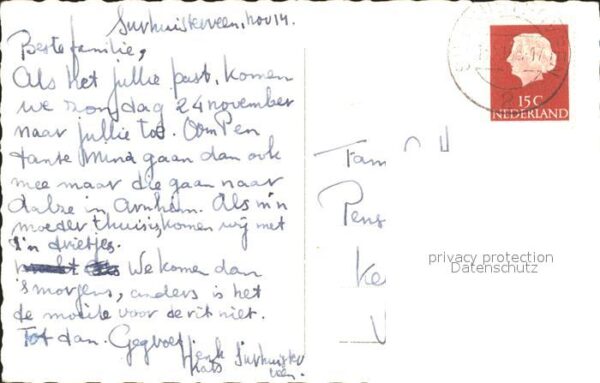 Surhuisterveen, nov 14.
Beste familie,
Als het jullie past, komen
we zondag 24 november
naar jullie toe. Oom Pen
tante Mina gaan dan ook
mee maar die gaan naar
in Arnhem. Als m'n
moeder thuis is, komen wij met
z'n drietjes.
We komen dan
's morgens, anders is het
de moeite voor de rit niet.
Tot dan. Gegroet Henk
Surhuister
veen.
15 C
NEDERLAND
Fam
Pens
Ke
V
privacy protection
Datenschutz